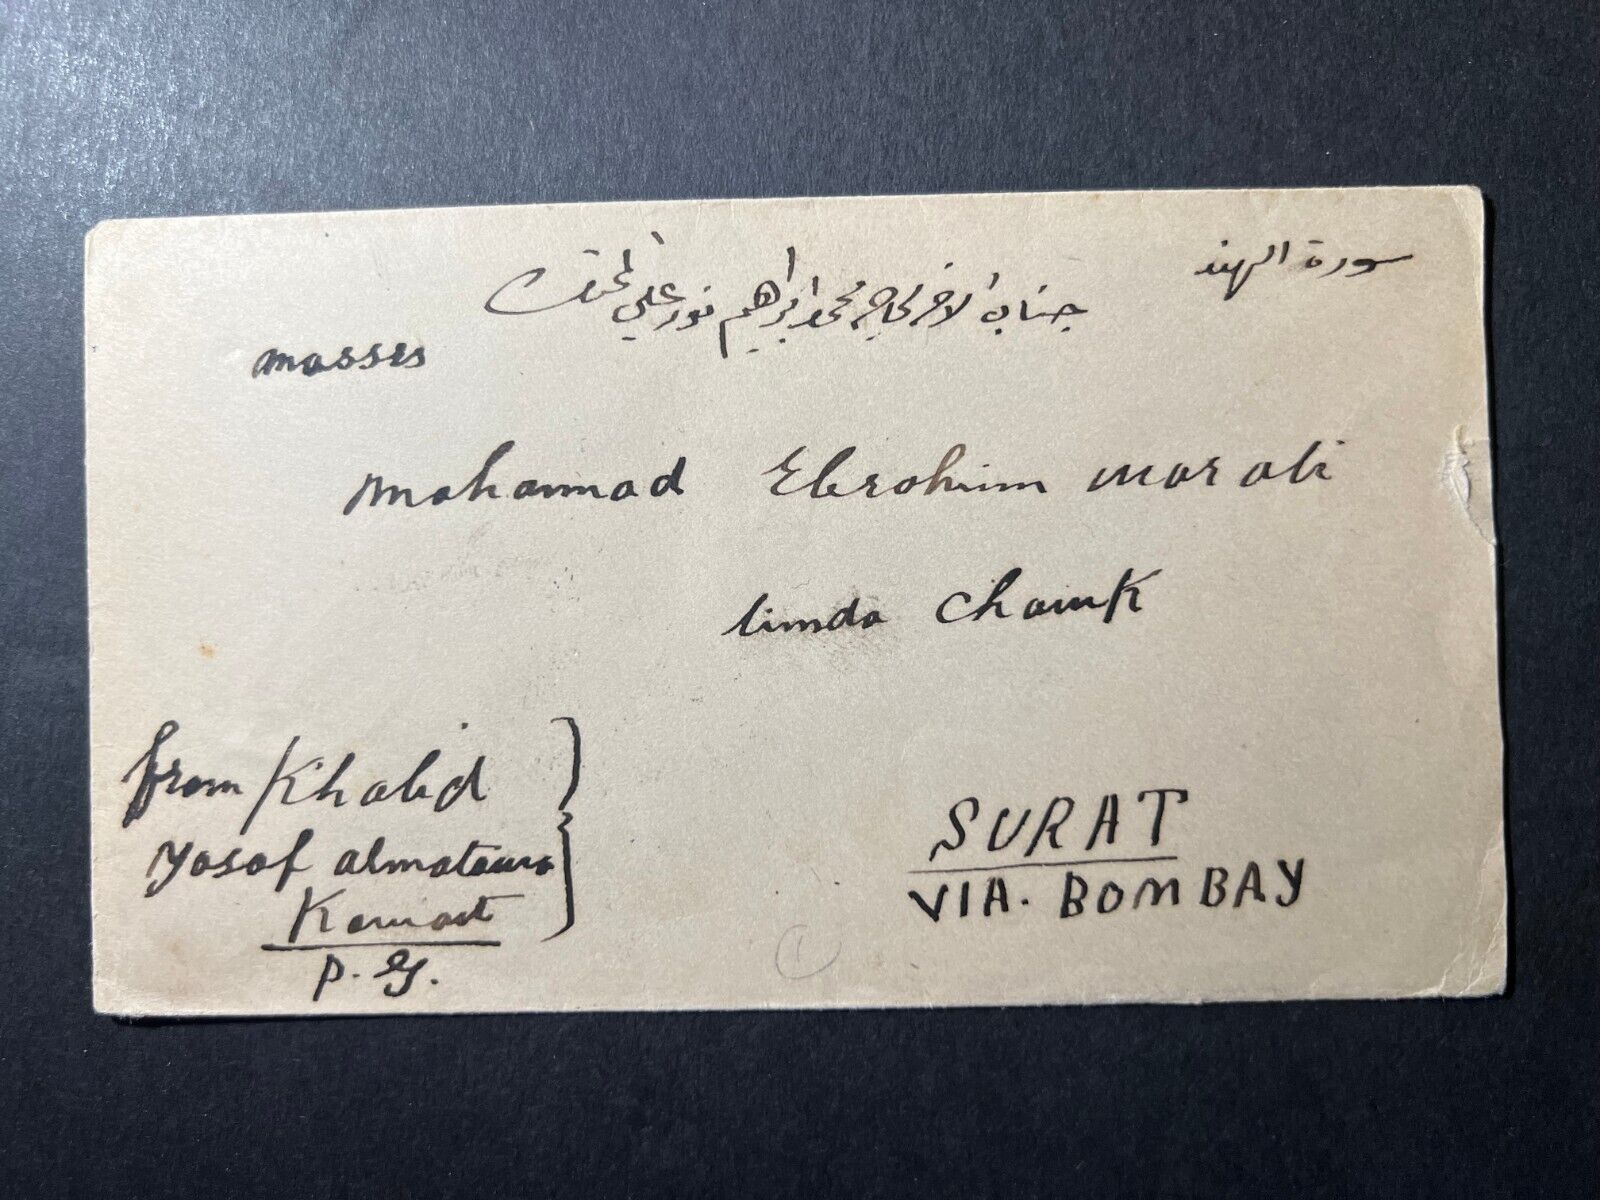 سورة الهند
جناب الاخ الحاج محمد ابراهيم نور علي المحترم
Masses
Mohammad Ebrohim norali
limda Chowk
from Khalid
Yosof almatawa
Kewait
P. G.
SURAT
VIA. BOMBAY
1